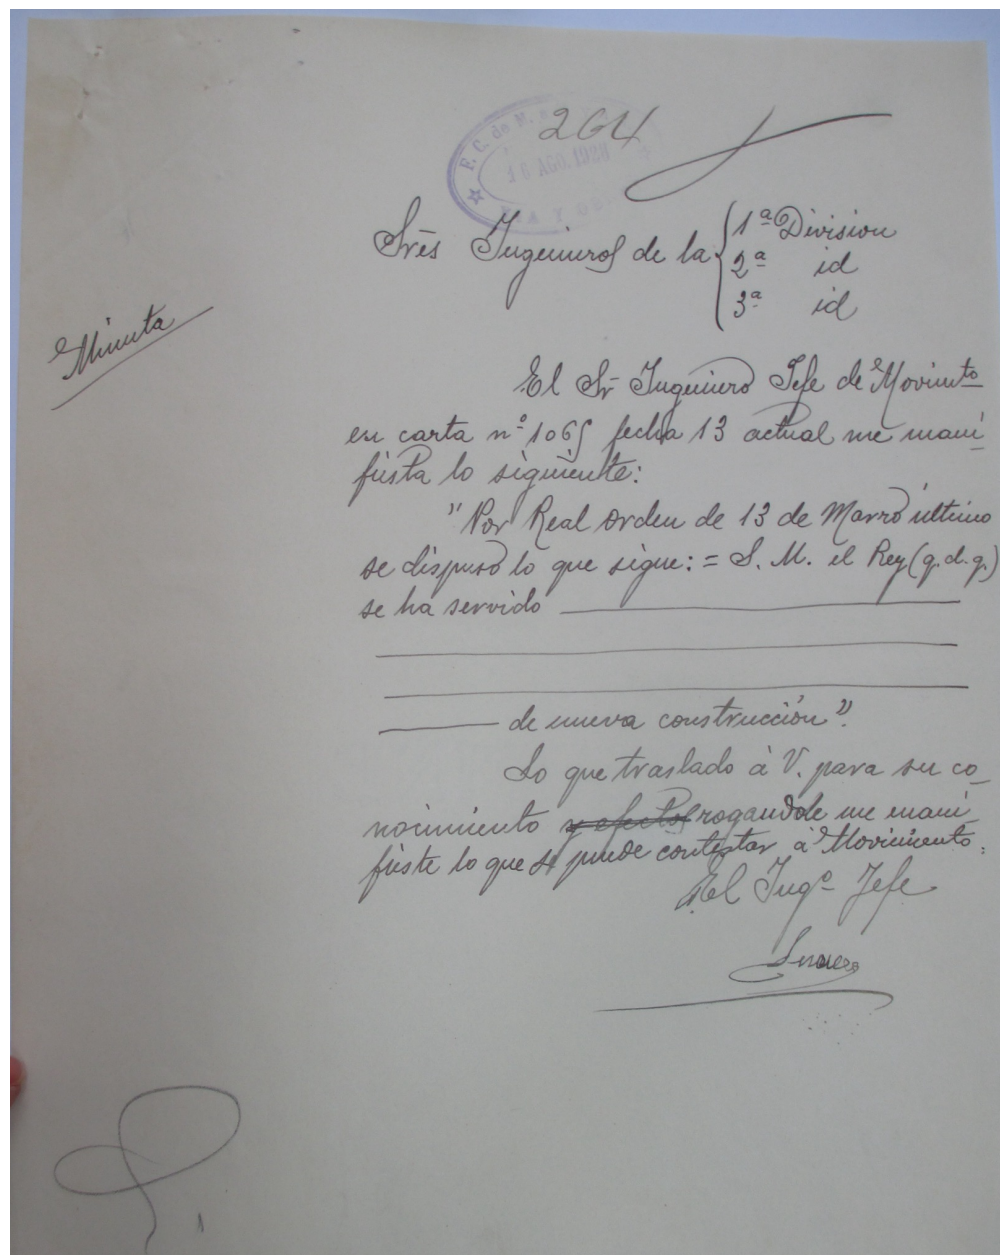 264
F.C. de M.
16 AGO. 1928
VIA Y OB
Srēs Ingenieros de la { 1ª Division
2ª id
3ª id
Minuta
El Sr Ingeniero Jefe de Movimto
en carta nº 1065 fecha 13 actual me mani
fiesta lo siguiente:
"Por Real orden de 13 de Marzo último
se dispuso lo que sigue: = S. M. el Rey (q.d.g.)
se ha servido
de nueva construcción".
Lo que traslado à V. para su co_
nocimiento y efectos rogandole me mani
fieste lo que se puede contestar à Movimiento.
El Ingº Jefe